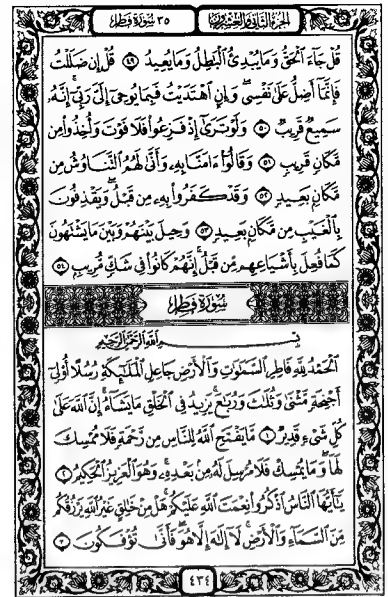 الجزء الثاني والعشرون ٣٥ سورة فطر
قُلْ جَآءَ ٱلْحَقُّ وَمَا يُبْدِئُ ٱلْبَٰطِلُ وَمَا يُعِيدُ ٤٩ قُلْ إِن ضَلَلْتُ
فَإِنَّمَآ أَضِلُّ عَلَىٰ نَفْسِى وَإِنِ ٱهْتَدَيْتُ فَبِمَا يُوحِىٓ إِلَىَّ رَبِّىٓ إِنَّهُۥ
سَمِيعٌ قَرِيبٌ ٥٠ وَلَوْ تَرَىٰٓ إِذْ فَزِعُوا۟ فَلَا فَوْتَ وَأُخِذُوا۟ مِن
مَّكَانٍ قَرِيبٍ ٥١ وَقَالُوٓا۟ ءَامَنَّا بِهِۦ وَأَنَّىٰ لَهُمُ ٱلتَّنَاوُشُ مِن
مَّكَانٍۭ بَعِيدٍ ٥٢ وَقَدْ كَفَرُوا۟ بِهِۦ مِن قَبْلُ وَيَقْذِفُونَ
بِٱلْغَيْبِ مِن مَّكَانٍۭ بَعِيدٍ ٥٣ وَحِيلَ بَيْنَهُمْ وَبَيْنَ مَا يَشْتَهُونَ
كَمَا فُعِلَ بِأَشْيَاعِهِم مِّن قَبْلُ إِنَّهُمْ كَانُوا۟ فِى شَكٍّ مُّرِيبٍۭ ٥٤
سورة فطر
بِسْمِ ٱللَّهِ ٱلرَّحْمَٰنِ ٱلرَّحِيمِ
ٱلْحَمْدُ لِلَّهِ فَاطِرِ ٱلسَّمَٰوَٰتِ وَٱلْأَرْضِ جَاعِلِ ٱلْمَلَٰٓئِكَةِ رُسُلًا أُو۟لِىٓ
أَجْنِحَةٍ مَّثْنَىٰ وَثُلَٰثَ وَرُبَٰعَ يَزِيدُ فِى ٱلْخَلْقِ مَا يَشَآءُ إِنَّ ٱللَّهَ عَلَىٰ
كُلِّ شَىْءٍ قَدِيرٌ ١ مَّا يَفْتَحِ ٱللَّهُ لِلنَّاسِ مِن رَّحْمَةٍ فَلَا مُمْسِكَ
لَهَا وَمَا يُمْسِكْ فَلَا مُرْسِلَ لَهُۥ مِنۢ بَعْدِهِۦ وَهُوَ ٱلْعَزِيزُ ٱلْحَكِيمُ ٢
يَٰٓأَيُّهَا ٱلنَّاسُ ٱذْكُرُوا۟ نِعْمَتَ ٱللَّهِ عَلَيْكُمْ هَلْ مِنْ خَٰلِقٍ غَيْرُ ٱللَّهِ يَرْزُقُكُم
مِّنَ ٱلسَّمَآءِ وَٱلْأَرْضِ لَآ إِلَٰهَ إِلَّا هُوَ فَأَنَّىٰ تُؤْفَكُونَ ٣
٤٣٤